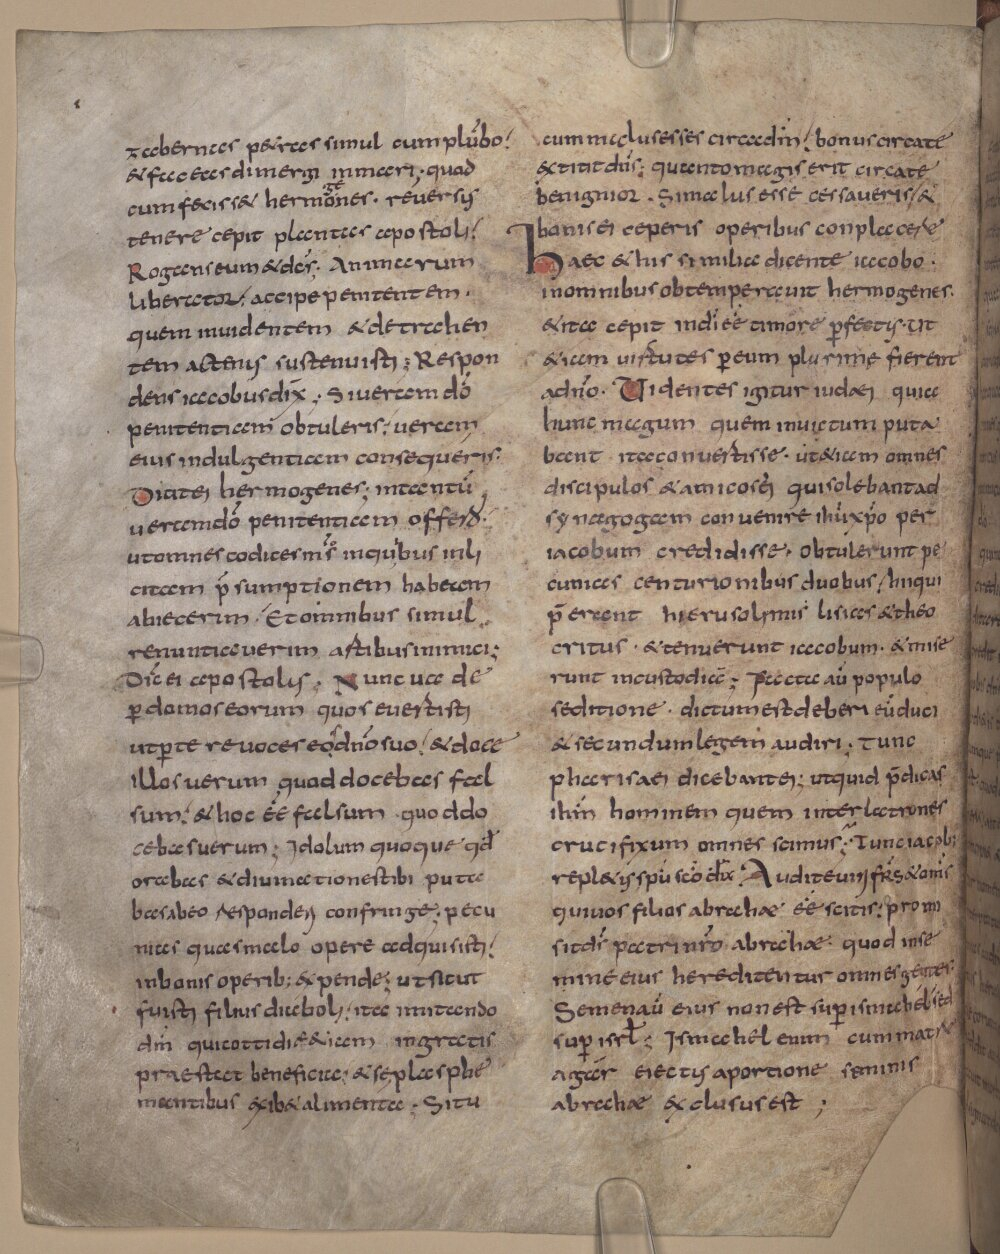 zabernas petras simul cum plūbo!
& fac eas dimergi in mari; quod
cum feciss& hermogenes. reversus
tenere cepit plantas apostoli!
Rogans eum & dēs; Animarum
liberator! accipe penitentem.
quem invidentem & detrahen
tem actenus sustenuisti; Respon
dens iacobus dix̄; Si veram dō
penitentiam obtuleris! veram
eius indulgentiam consequeris.
Dicit ei hermogenes; in tantū
veram dō penitentiam offero.
ut omnes codices m̄s in quibus inli
citam p̄sumptionem habeam
abiecerim! Et omnibus simul
renuntiaverim artibus inimici;
Dīc ei apostolus; Nunc vade
ꝑ domos eorum quos evertisti
ut ꝑte revoces eos dn̄o suo! & doce
illos verum quod docebas fal
sum! & hoc ēē falsum quod do
cebas verum; Idolum quoque qd̄
orabas & divinationes tibi puta
bas ab eo responderi confringe. pecu
nias quas malo opere adquisisti!
in bonis operib; expende; ut sicut
fuisti filius diaboli! ita imitando
dn̄i qui cottidi& &iam ingratis
praestat beneficia; & se blasphe
mantibus exib& alimenta; Si tu
cum malus esses circa dn̄m! bonus circa te
extitit dn̄s; quanto magis erit circa te
benignior. Si malus esse cessaveris! &
bonis ei ceperis operibus conplacere
Haec & his similia dicente iacobo.
in omnibus obtemperavit hermogenes.
& ita cepit in dī ēē timore ꝑfectus. Ut
&iam virtutes ꝑ eum plurime fierent
a dn̄o. Videntes igitur iudaei quia
hunc magum quem invictum puta
bant ita convertisse. ut &iam omnes
discipulos & amicos ei qui solebant ad
synagogam convenire ih̄u xp̄o per
iacobum credidisse. obtulerunt pe
cunias centurionibus duobus! hii qui
p̄erant hierusolimis lisias & theo
critus. & tenuerunt iacobum. & mise
runt in custodiā; Facta aū populo
seditione. dictum est deberi eū duci
& secundum legem audiri; Tunc
pharisaei dicebant ei; ut quid p̄dicas
ih̄m hominem quem inter latrones
crucifixum omnes scimus; Tunc iacob;
repl&us sp̄u sc̄o dix̄; Audite viri fr̄s & om̄s
qui vos filios abrahae ēē scitis; promi
sit d̄s patri nr̄o abrahae. quod in se
mine eius hereditentur omnes gentes.
Semen aū eius non est suꝑ ismahel! sed
suꝑ isr̄l; Ismahel enim cum matre
agār eiectus a portione seminis
abrahae exclusus est ;